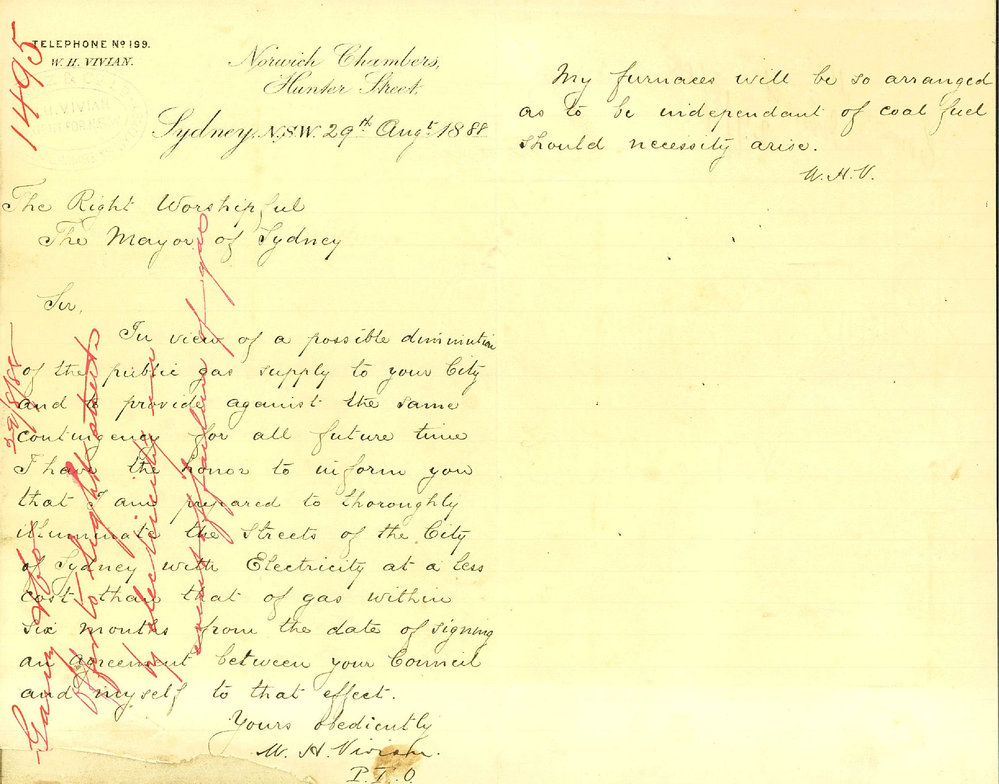 TELEPHONE No 199.
W. H. VIVIAN.
Norwich Chambers,
Hunter Street.
Sydney, N.S.W. 29th Augt. 1888
1495
The Right Worshipful
The Mayor of Sydney
Sir,
In view of a possible diminution
of the public gas supply to your City
and to provide against the same
contingency for all future time
I have the honor to inform you
that I am prepared to thoroughly
illuminate the Streets of the City
of Sydney with Electricity at a less
cost than that of gas within
six months from the date of signing
an agreement between your Council
and myself to that effect.
Yours obediently
W. H. Vivian.
P.T.O.
29/8/88
Offer to light streets
by electricity in
event of failure of gas
My furnaces will be so arranged
as to be independant of coal fuel
should necessity arise.
W. H. V.